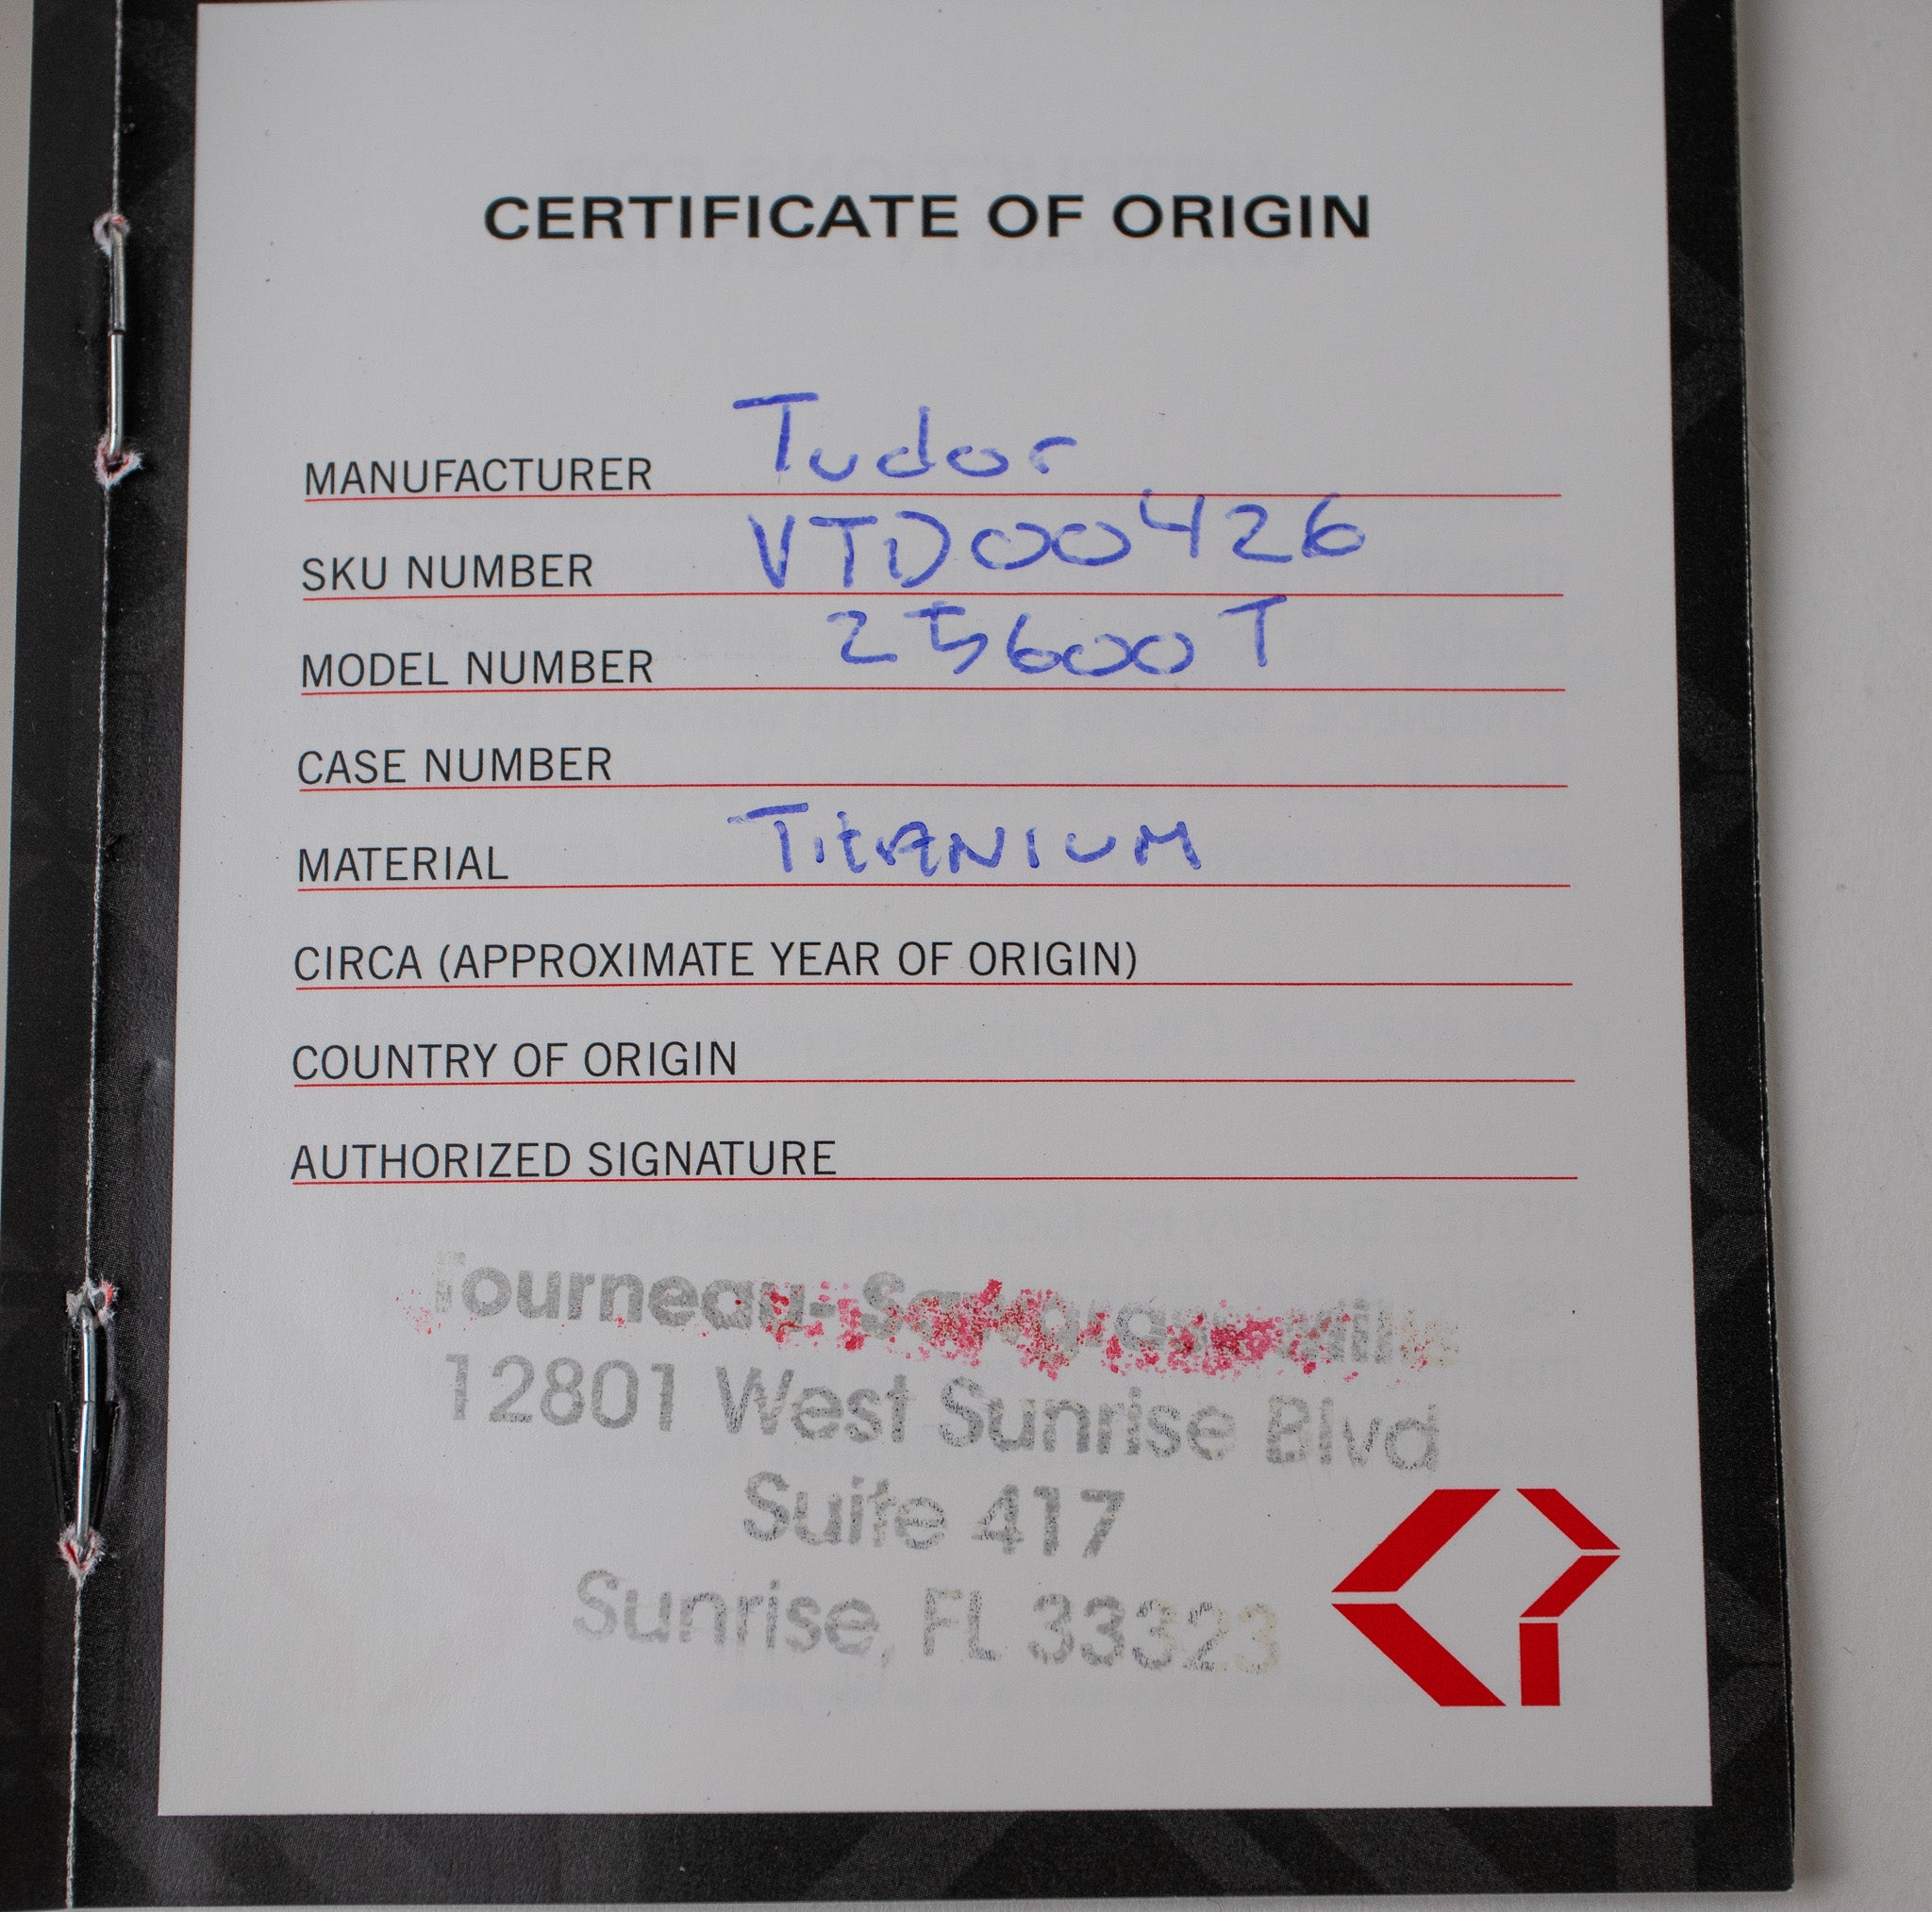 CERTIFICATE OF ORIGIN
MANUFACTURER Tudor
SKU NUMBER VTD00426
MODEL NUMBER 25600T
CASE NUMBER
MATERIAL TITANIUM
CIRCA (APPROXIMATE YEAR OF ORIGIN)
COUNTRY OF ORIGIN
AUTHORIZED SIGNATURE
Tourneau- Sawgrass Mills
12801 West Sunrise Blvd
Suite 417
Sunrise, FL 33323